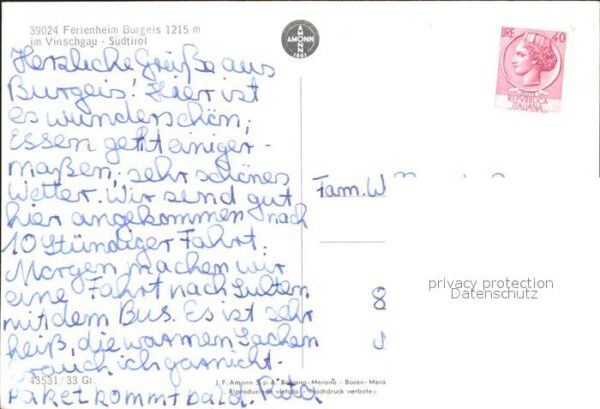 39024 Ferienheim Burgeis 1215 m
im Vinschgau - Südtirol
AMONN
AMONN
1802
LIRE 40
REPUBBLICA
ITALIANA
Herzliche Grüße aus
Burgeis! Hier ist
es wunderschön,
Essen geht einiger-
maßen, sehr schönes
Wetter. Wir send gut
hier angekommen nach
10 Stündiger Fahrt.
Morgen machen wir
eine Fahrt nach Sulten
mit dem Bus. Es ist sehr
heiß, die warmen Sachen
brauch ich garnicht.
Paket kommt bald.
Fam. W
8
privacy protection
Datenschutz
43531/33 Gr.
J. F. Amonn S.p.A. Bolzano-Merano - Bozen-Mera
Riproduzione vietata - Nachdruck verboten